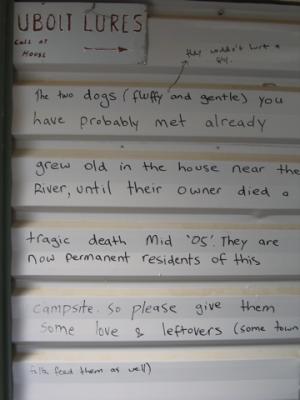 UBOIT LURES
Call at
House
they wouldn't hurt a
fly.
The two dogs (fluffy and gentle) you
have probably met already
grew old in the house near the
River, until their owner died a
tragic death Mid '05'. They are
now permanent residents of this
campsite. So please give them
some love & leftovers (some town
folk feed them as well)